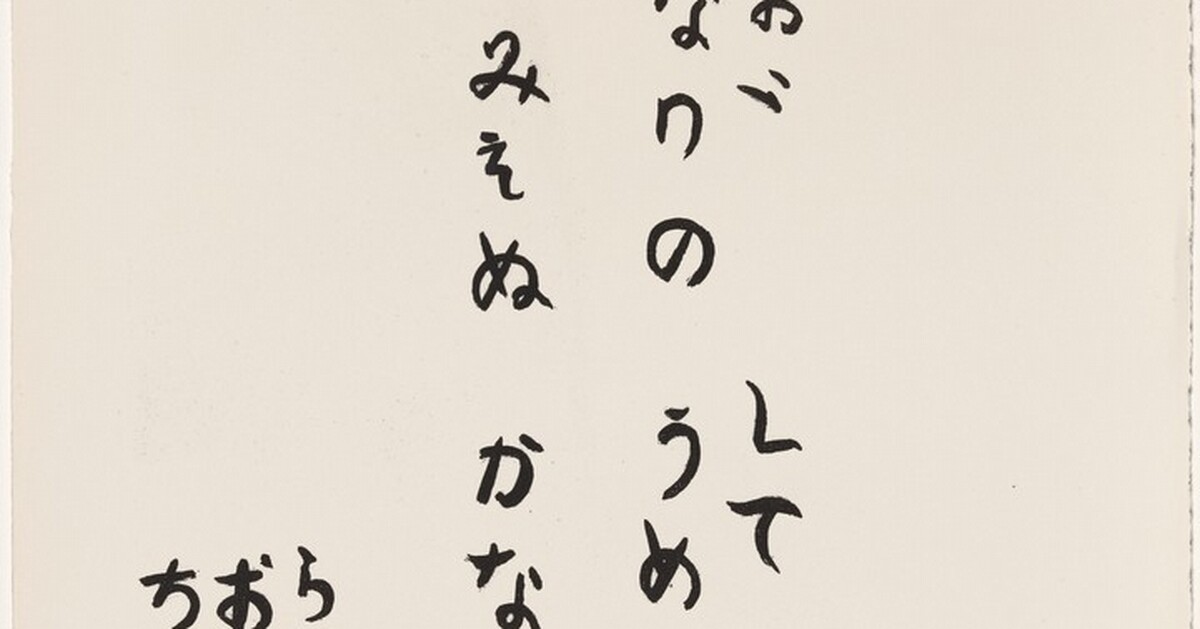 おい して
なりの うめ
みえぬ かな
ら
お
ち